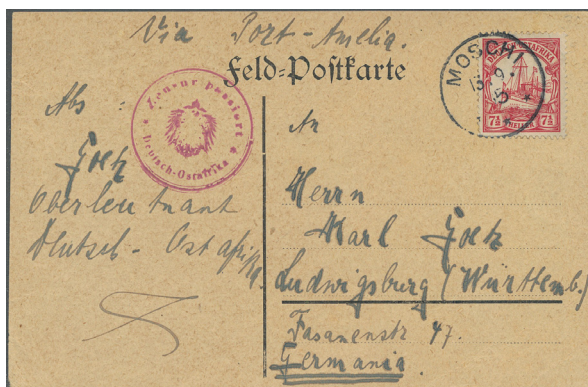 Via Port-Amelia.
Feld-Postkarte
MOSCHI
DEUTSCH-OSTAFRIKA
7½ HELLER 7½
Zensur passiert
Deutsch-Ostafrika
Abs:
Goetz
Oberleutnant
Deutsch-Ostafrika
An
Herrn
Karl Goetz
Ludwigsburg (Württemb.)
Fasanenstr 47.
Germania